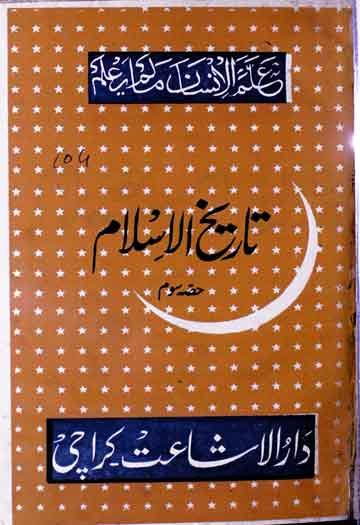 عَلَّمَ الْإِنْسَانَ مَا لَمْ يَعْلَمْ
تاریخ الاِسلام
حصہ سوم
دارُ الاشاعت کراچی